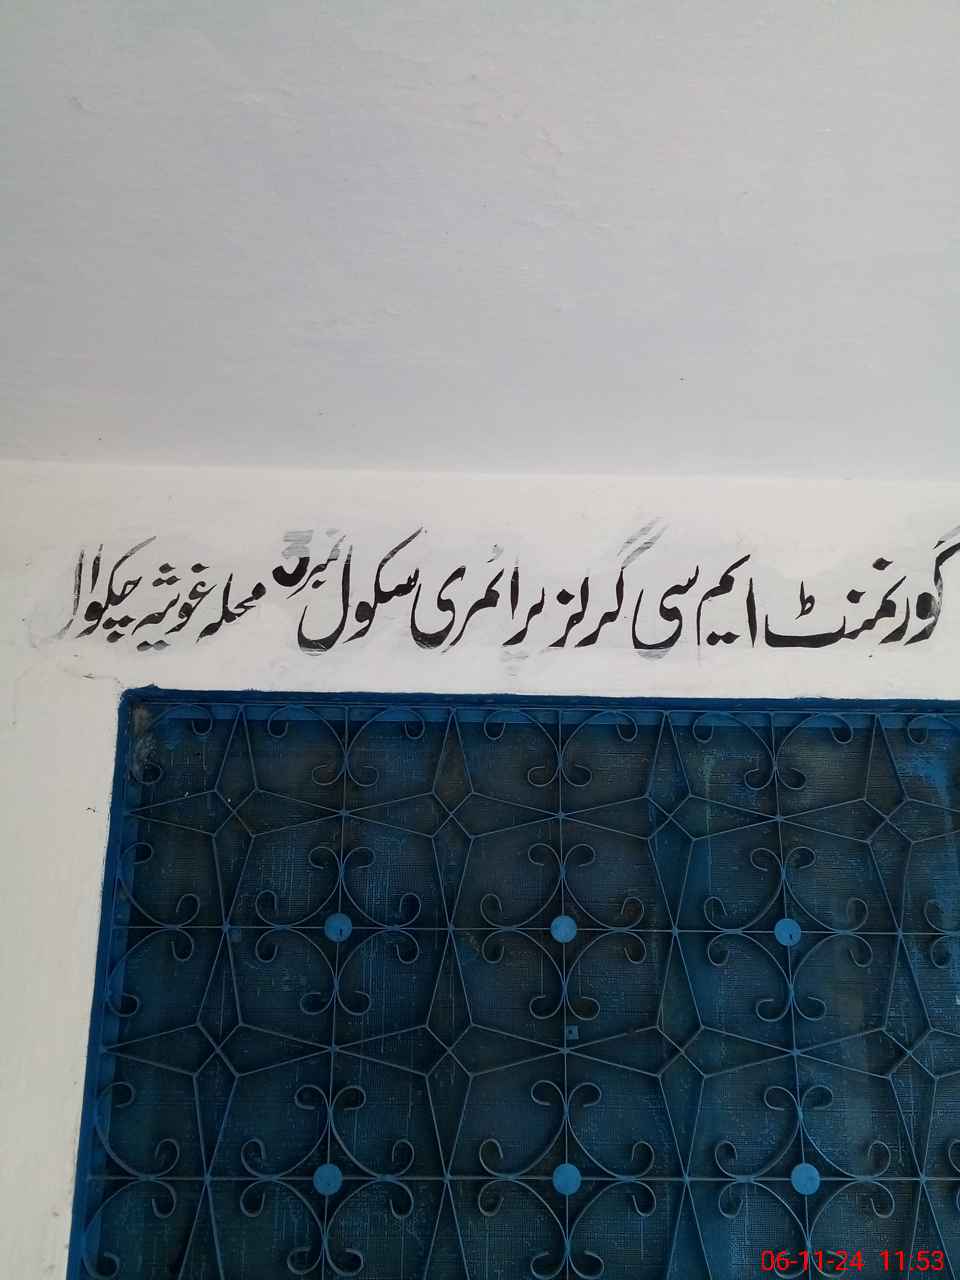 گورنمنٹ ایم سی گرلز پرائمری سکول نمبر3 محلہ غوثیہ چکوال
06-11-24 11:53